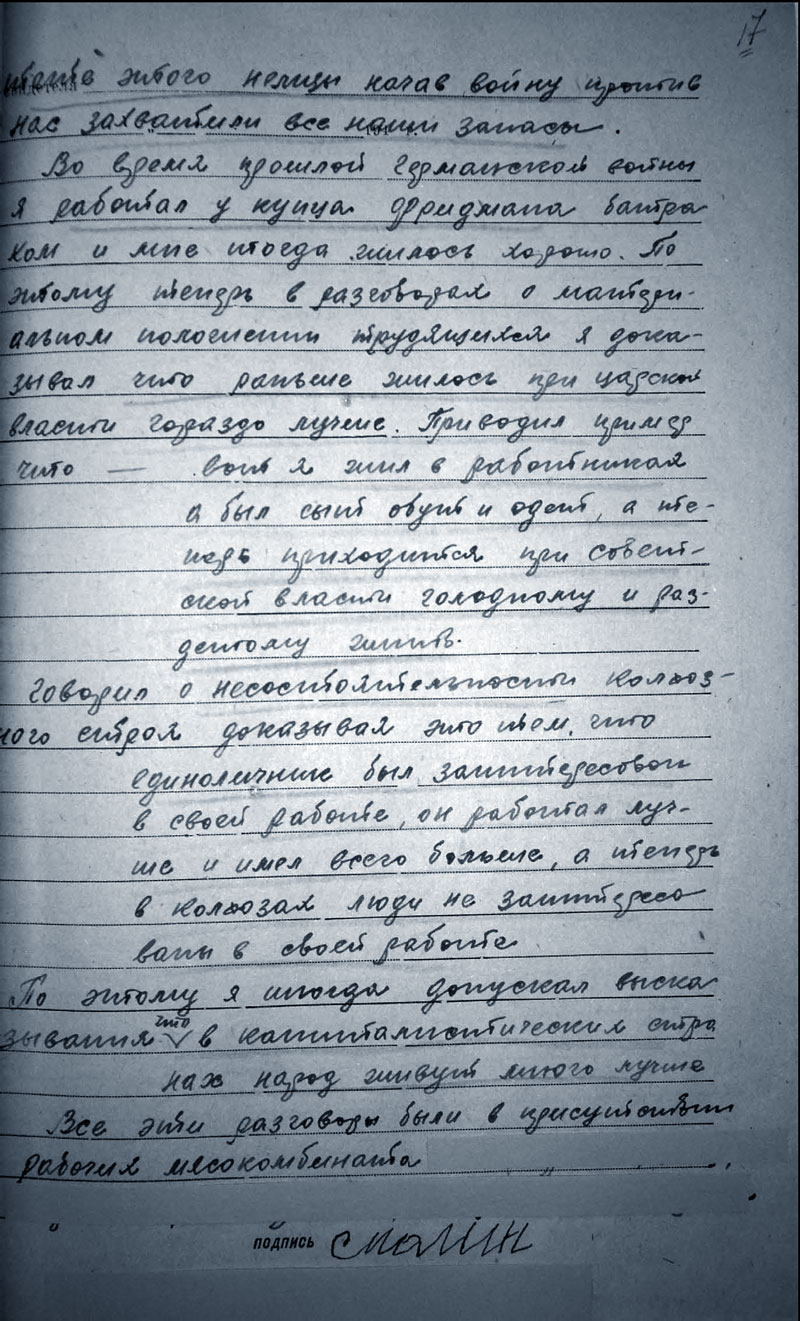 17
этого немцы начав войну против
нас захватили все наши запасы.
Во время прошлой германской войны
я работал у купца Фриджана батра
ком и мне тогда жилось хорошо. По
этому теперь в разговорах о матери-
альном положении трудящихся я дока-
зывал что раньше жилось при царской
власти гораздо лучше. Приводил пример
что — вот я жил в работниках
а был сыт обут и одет, а те-
перь приходится при совет-
ской власти голодному и раз-
детому жить.
Говорил о несостоятельности колхоз-
ного строя доказывая это тем, что
единоличник был заинтересован
в своей работе, он работал луч-
ше и имел всего больше, а теперь
в колхозах люди не заинтересо
ваны в своей работе
По этому я иногда допускал выска
зывания что в капиталистических стра
нах народ живут много лучше
Все эти разговоры были в присутствии
рабочих мясокомбината
подпись